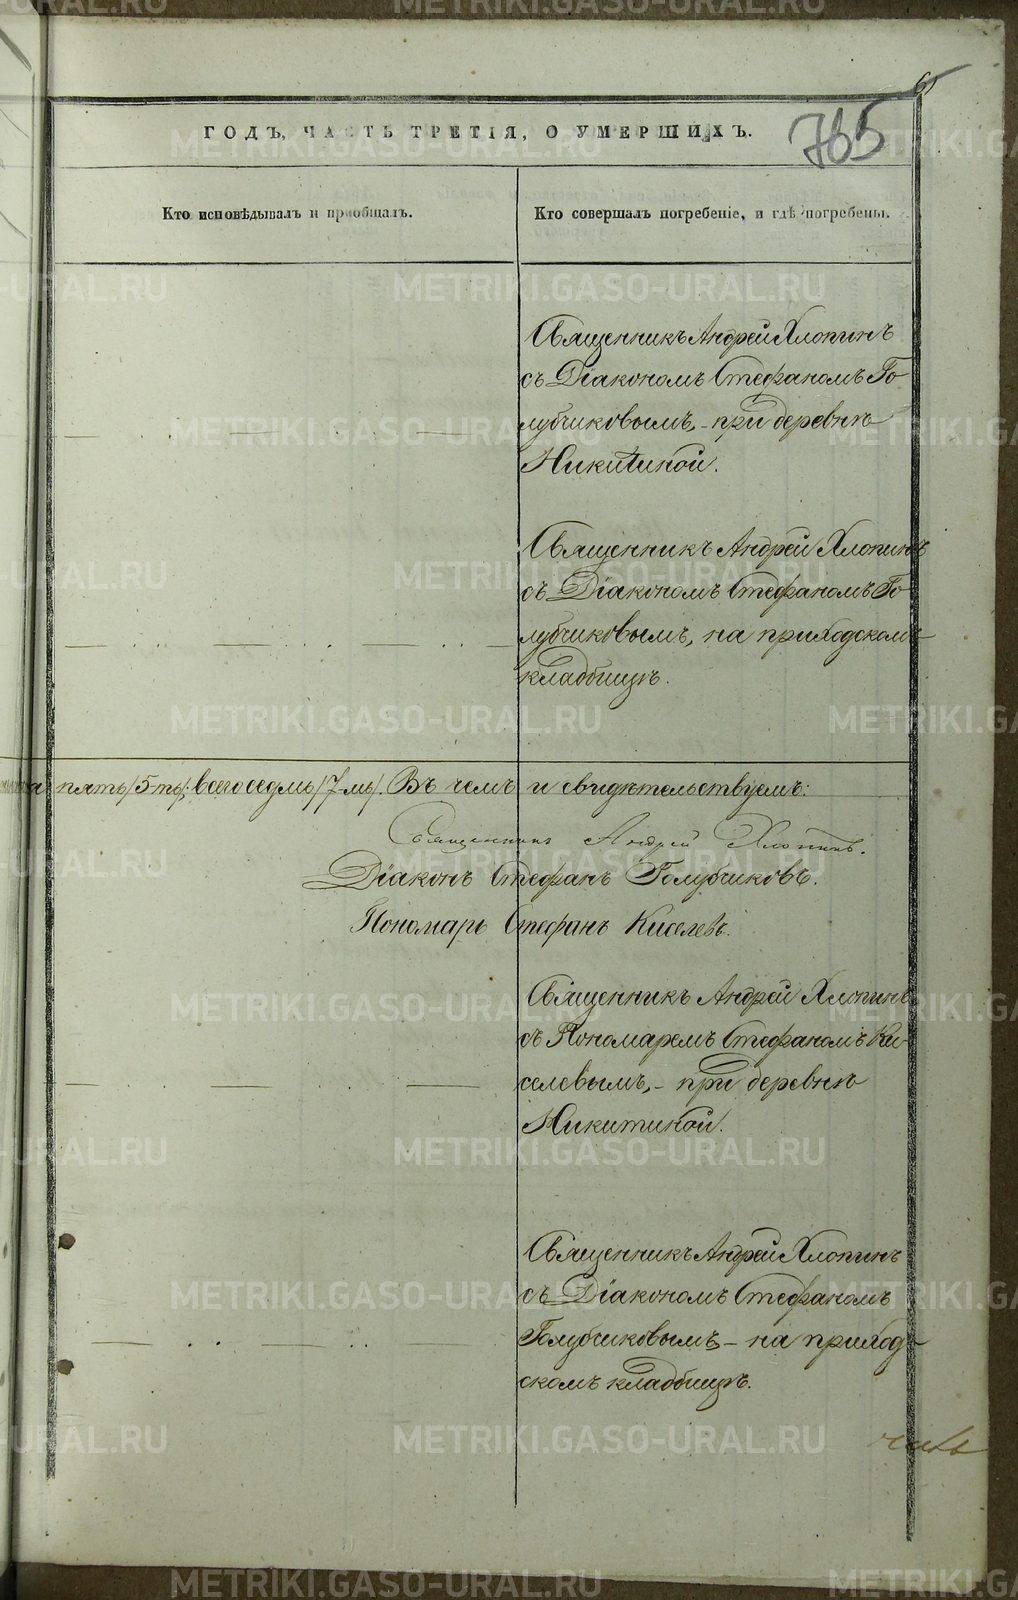 65
765
ГОДЪ, ЧАСТЬ ТРЕТІЯ, О УМЕРШИХЪ.
Кто исповѣдывалъ и пріобщалъ.
Кто совершалъ погребеніе, и гдѣ погребены.
Священникъ Андрей Хлопинъ
съ Діакономъ Стефаномъ Го
лубчиковымъ, - при деревнѣ
Никитиной.
Священникъ Андрей Хлопинъ
съ Діакономъ Стефаномъ Го
лубчиковымъ, на приходскомъ
кладбищѣ.
пять /5-ть/; всего седмь /7-мь/. Въ чемъ и свидѣтельствуемъ:
Священникъ Андрей Хлопинъ.
Діаконъ Стефанъ Голубчиковъ.
Пономарь Стефанъ Киселевъ.
Священникъ Андрей Хлопинъ
съ Пономаремъ Стефаномъ Ки-
селевымъ, - при деревнѣ
Никитиной.
Священникъ Андрей Хлопинъ
съ Діакономъ Стефаномъ
Голубчиковымъ - на приход-
скомъ кладбищѣ.
METRIKI.GASO-URAL.RU